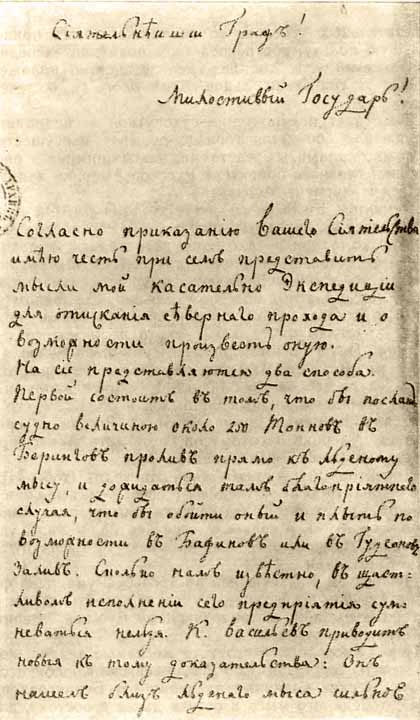 Сіятельнѣишій Графъ!
Милостивый Государь!
Согласно приказанію Вашего Сіятельства
имѣю честь при семъ представить
мысли мой касательно Экспедиціи
для отисканія сѣвернаго прохода и о
возможности произвесть оную.
На сіе представляются два способа.
Первой состоитъ въ томъ, что бы послать
судно величиною около 200 Тонновъ въ
Беринговъ проливъ прямо къ Льденому
мысу, и дожидаться тамъ благопріятнаго
случая, что бы обойти оный и плыть по
возможности въ Бафиновъ или въ Гудсоновъ
Заливъ. Сколько намъ извѣстно, въ щаст-
ливомъ исполненіи сего предпріятія сум-
неваться нельзя. К. Васильевъ приводитъ
новыя къ тому доказательства: Онъ
нашелъ близъ Льденаго мыса сильное